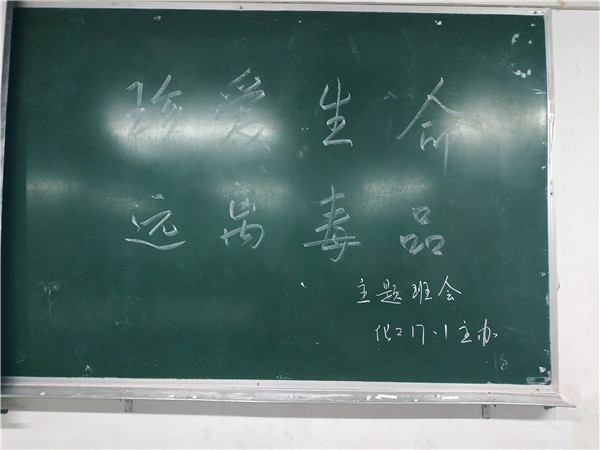 珍爱生命
远离毒品
主题班会
化工17.1主办